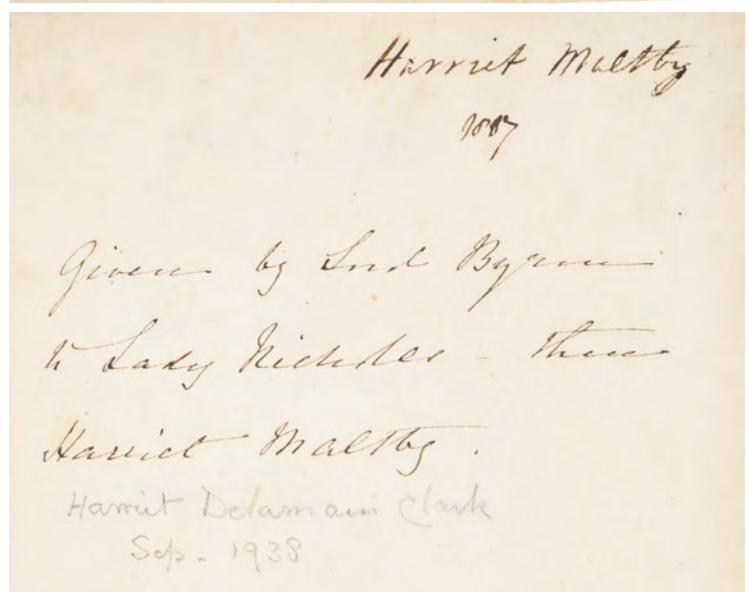 Harriet Maltby
1807
Given by Lord Byron
to Lady Nicholls - then
Harriet Maltby.
Harriet Delamain Clark
Sep. 1938